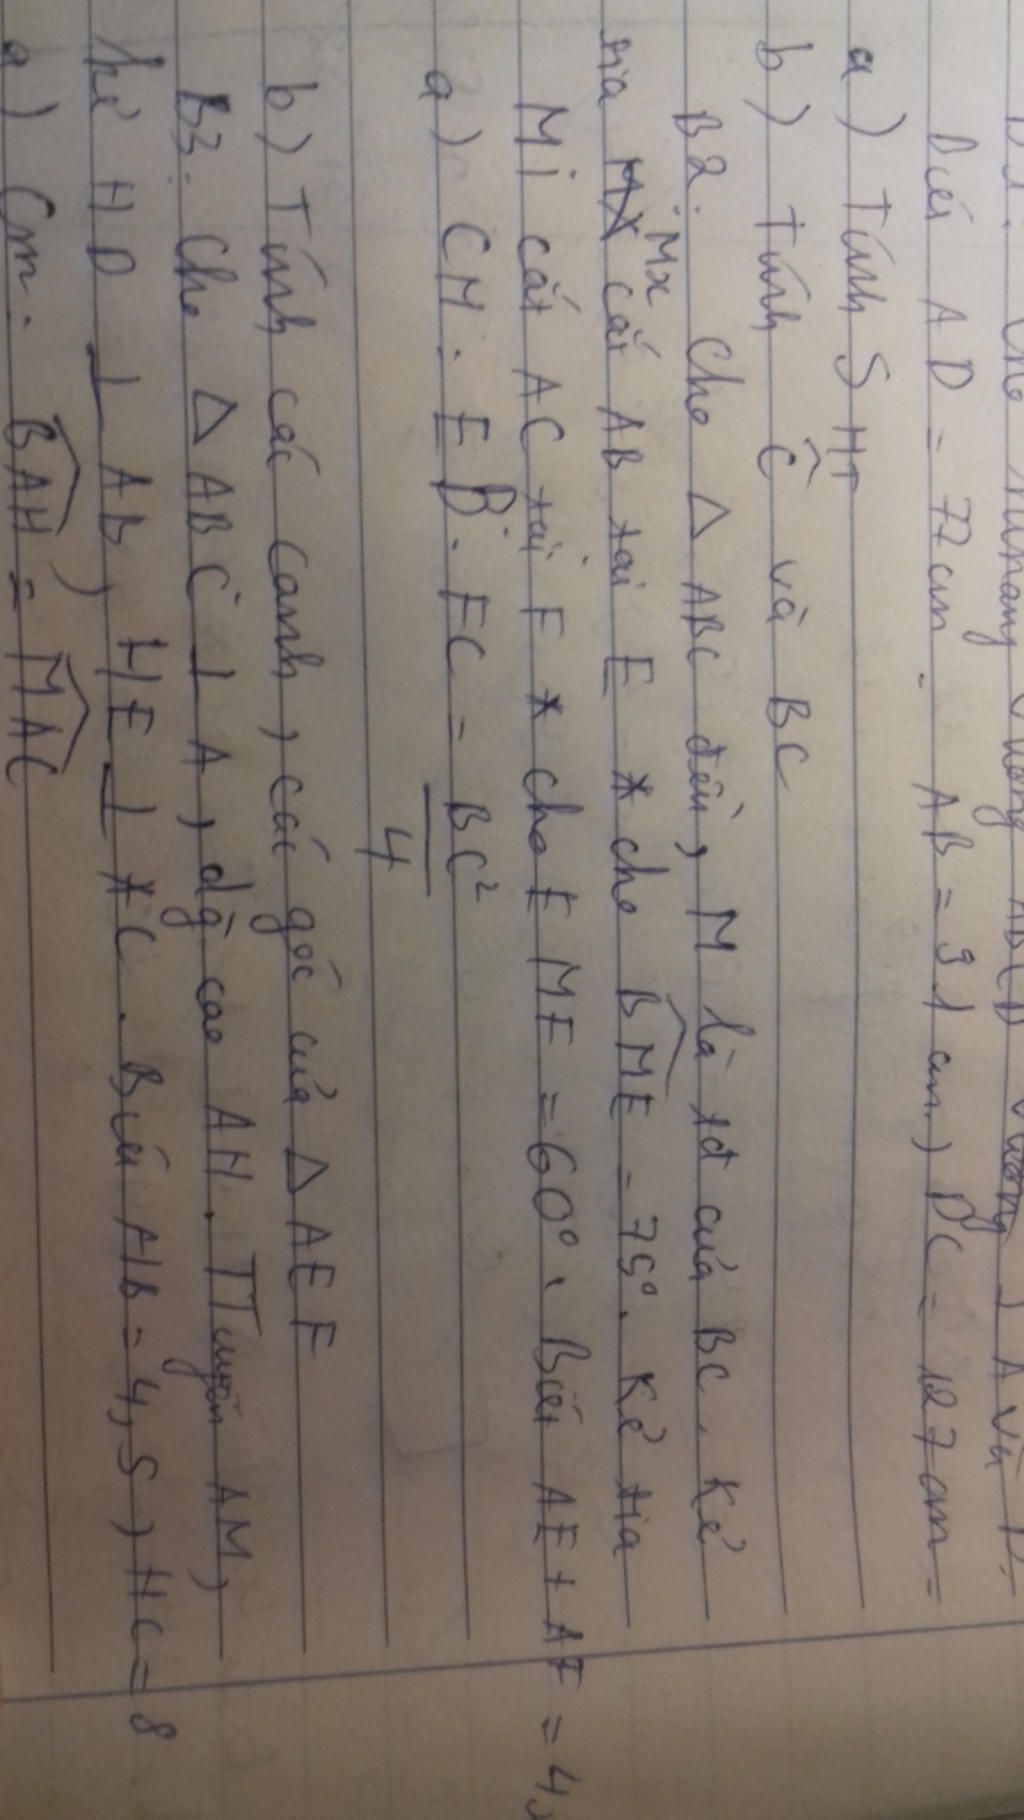 Cho thang vuông ABCD vuông ⊥ A và D.
Biết AD = 77cm. AB = 91 cm, DC = 127cm
a) Tính S HT
b) Tính Ĉ và BC
B2. Cho △ ABC đều, M là tđ của BC. Kẻ
tia Mx cắt AB tại E * cho BME = 75°. Kẻ tia
Mi cắt AC tại F * cho EMF = 60°. Biết AE + AF = 4,
a) CM: EB. FC = BC²/4
b) Tính các cạnh, các góc của △ AEF
B3. Cho △ ABC ⊥ A, dg cao AH. TTuyến AM,
kẻ HD ⊥ AB, HE ⊥ AC. Biết HB = 4,5, HC = 8
a) Cm. BAH = MAC